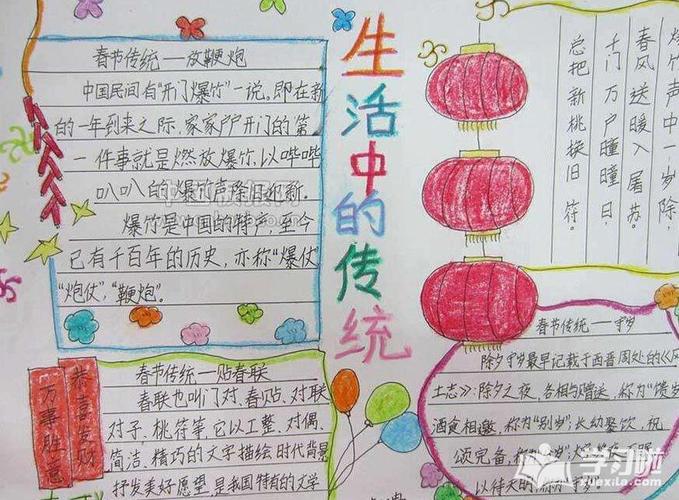 春节传统——放鞭炮
中国民间有"开门爆竹"一说。即在新
的一年到来之际,家家户户开门的第
一件事就是燃放爆竹,以哔哔
叭叭的爆竹声除旧迎新。
爆竹是中国的特产,至今
已有千百年的历史,亦称"爆仗"
"炮仗","鞭炮"。
生活中的传统
声中一岁除,
春风送暖入屠苏。
千门万户曈曈日,
总把新桃换旧符。
恭喜发财
万事胜意
春节传统——贴春联
春联也叫门对、春贴、对联
对子、桃符等,它以工整、对偶、
简洁、精巧的文字描绘时代背景
抒发美好愿望,是我国特有的文学
春节传统——守岁
除夕守岁最早记载于西晋周处的《风
土志》:除夕之夜,各相与赠送,称为"馈岁
酒食相邀,称为"别岁";长幼聚饮,祝
颂完备,称为
以待天明,称
学习啦
www.xuexila.com